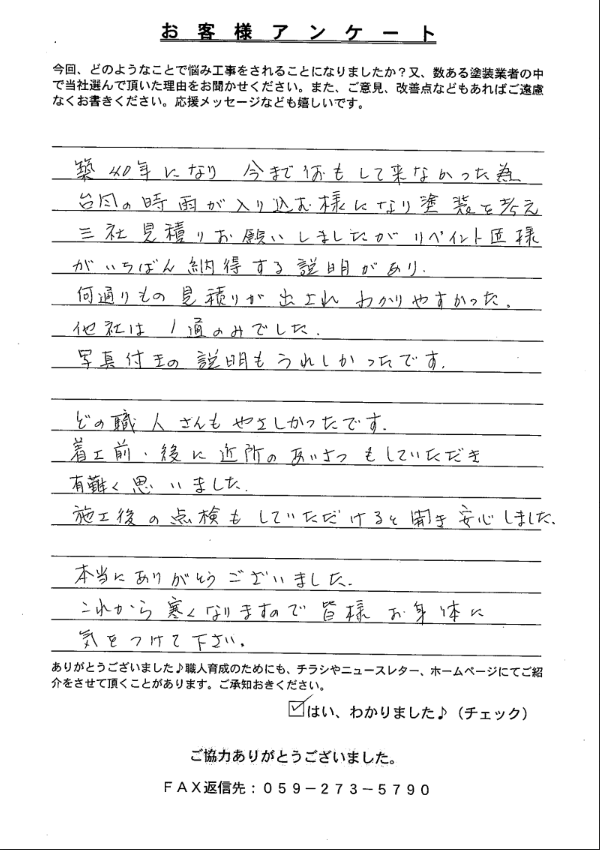 お客様アンケート
今回、どのようなことで悩み工事をされることになりましたか？又、数ある塗装業者の中
で当社選んで頂いた理由をお聞かせください。また、ご意見、改善点などもあればご遠慮
なくお書きください。応援メッセージなども嬉しいです。
築40年になり 今まで何もして来なかった為
台風の時雨が入り込む様になり塗装を考え
三社見積りお願いしましたがリペイント匠様
がいちばん納得する説明があり.
何通りもの見積りが出され わかりやすかった。
他社は1通のみでした.
写真付きの説明もうれしかったです.
どの職人さんもやさしかったです.
着工前・後に近所のあいさつもしていただき
有難く思いました.
施工後の点検もしていただけると聞き安心しました.
本当にありがとうございました.
これから寒くなりますので皆様お身体に
気をつけて下さい。
ありがとうございました♪職人育成のためにも、チラシやニュースレター、ホームページにてご紹
介をさせて頂くことがあります。ご承知おきください。
☑はい、わかりました♪（チェック）
ご協力ありがとうございました。
ＦＡＸ返信先：０５９－２７３－５７９０